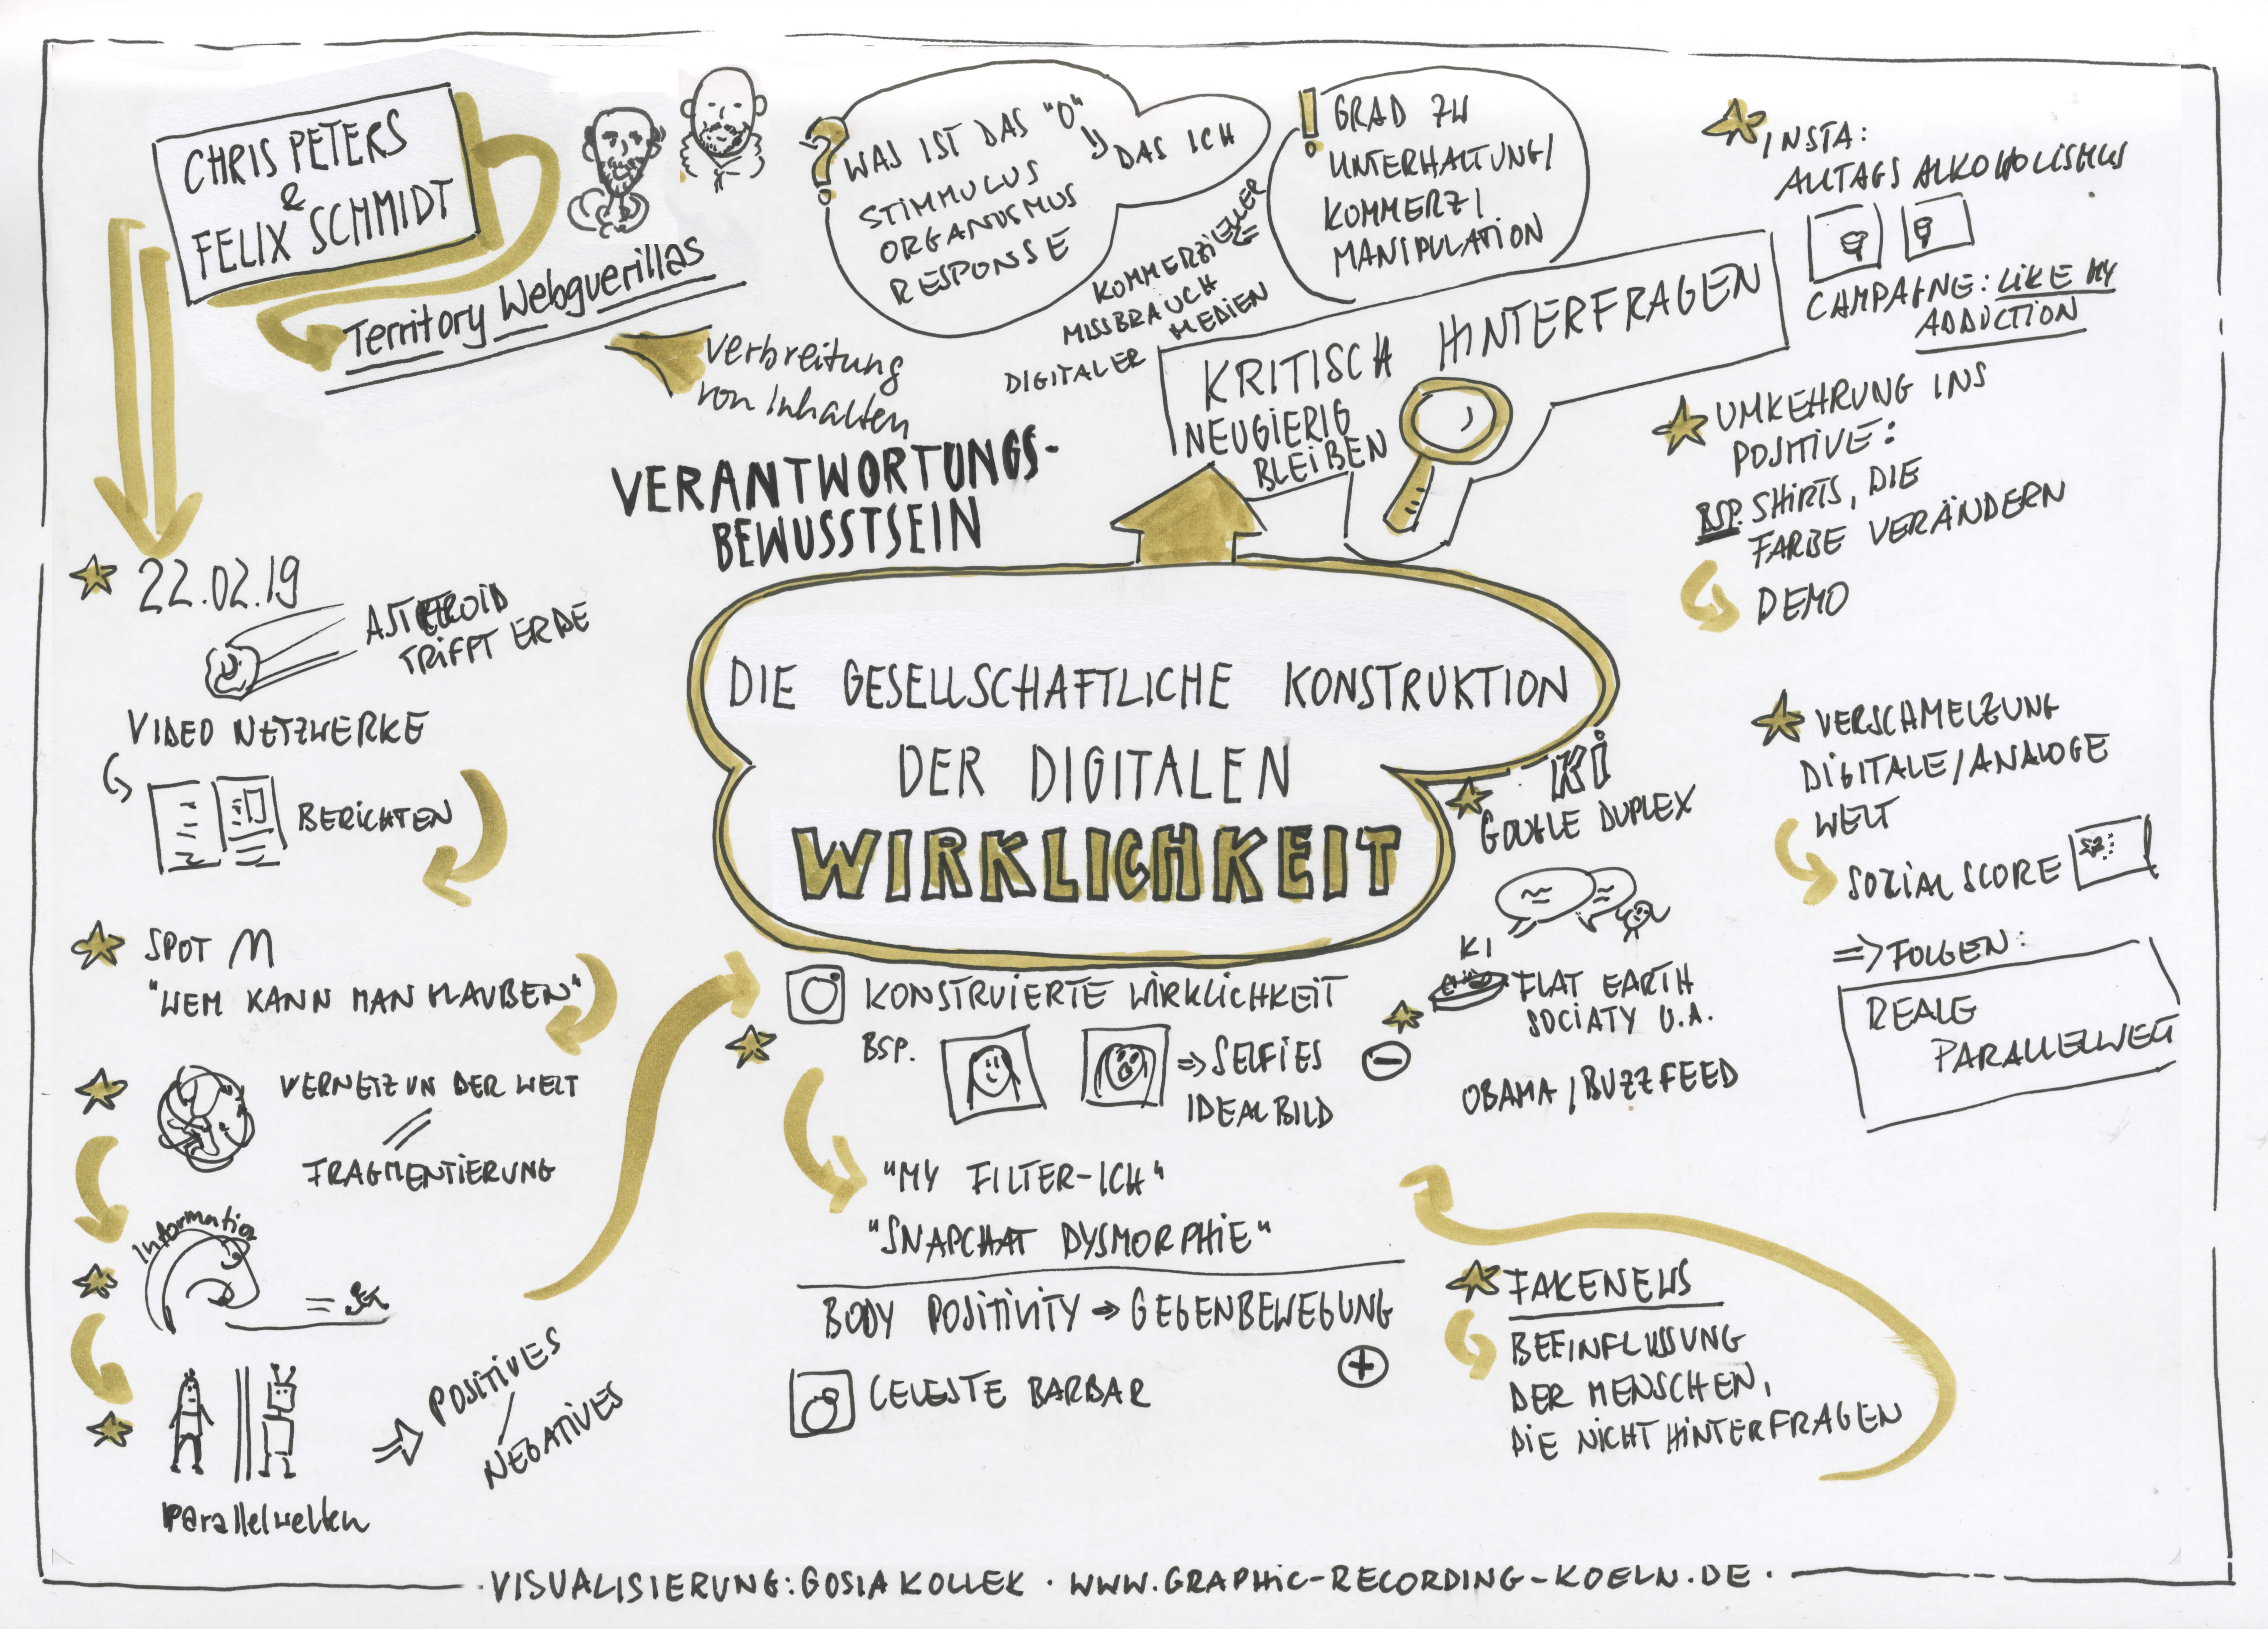 CHRIS PETERS
&
FELIX SCHMIDT
Territory Webguerillas
Verbreitung
von Inhalten
VERANTWORTUNGS-
BEWUSSTSEIN
?
WAS IST DAS "O"
DAS ICH
STIMMULUS
ORGANISMUS
RESPONSE
!
GRAD ZW
UNTERHALTUNG/
KOMMERZ/
MANIPULATION
KOMMERZIELLER
MISSBRAUCH
DIGITALER MEDIEN
KRITISCH HINTERFRAGEN
NEUGIERIG
BLEIBEN
INSTA:
ALLTAGS ALKOHOLISMUS
CAMPAGNE: LIKE MY
ADDICTION
UMKEHRUNG INS
POSITIVE:
BSP. SHIRTS, DIE
FARBE VERÄNDERN
DEMO
VERSCHMELZUNG
DIGITALE/ANALOGE
WELT
SOZIAL SCORE
=> FOLGEN:
REALE
PARALLELWELT
22.02.19
ASTEROID
TRIFFT ERDE
VIDEO NETZWERKE
BERICHTEN
SPOT M
"WEM KANN MAN GLAUBEN"
VERNETZUN DER WELT
//
FRAGMENTIERUNG
Information
=
Parallelwelten
=> POSITIVES
/
NEGATIVES
DIE GESELLSCHAFTLICHE KONSTRUKTION
DER DIGITALEN
WIRKLICHKEIT
KONSTRUIERTE WIRKLICHKEIT
BSP.
=> SELFIES
IDEALBILD
"MY FILTER-ICH"
"SNAPCHAT DYSMORPHIE"
BODY POSITIVITY → GEGENBEWEGUNG
+
CELESTE BARBAR
KI
GOOGLE DUPLEX
KI
FLAT EARTH
SOCIATY U.A.
-
OBAMA / BUZZFEED
FAKENEWS
BEEINFLUSSUNG
DER MENSCHEN,
DIE NICHT HINTERFRAGEN
·VISUALISIERUNG: GOSIA KOLLEK · WWW.GRAPHIC-RECORDING-KOELN.DE·